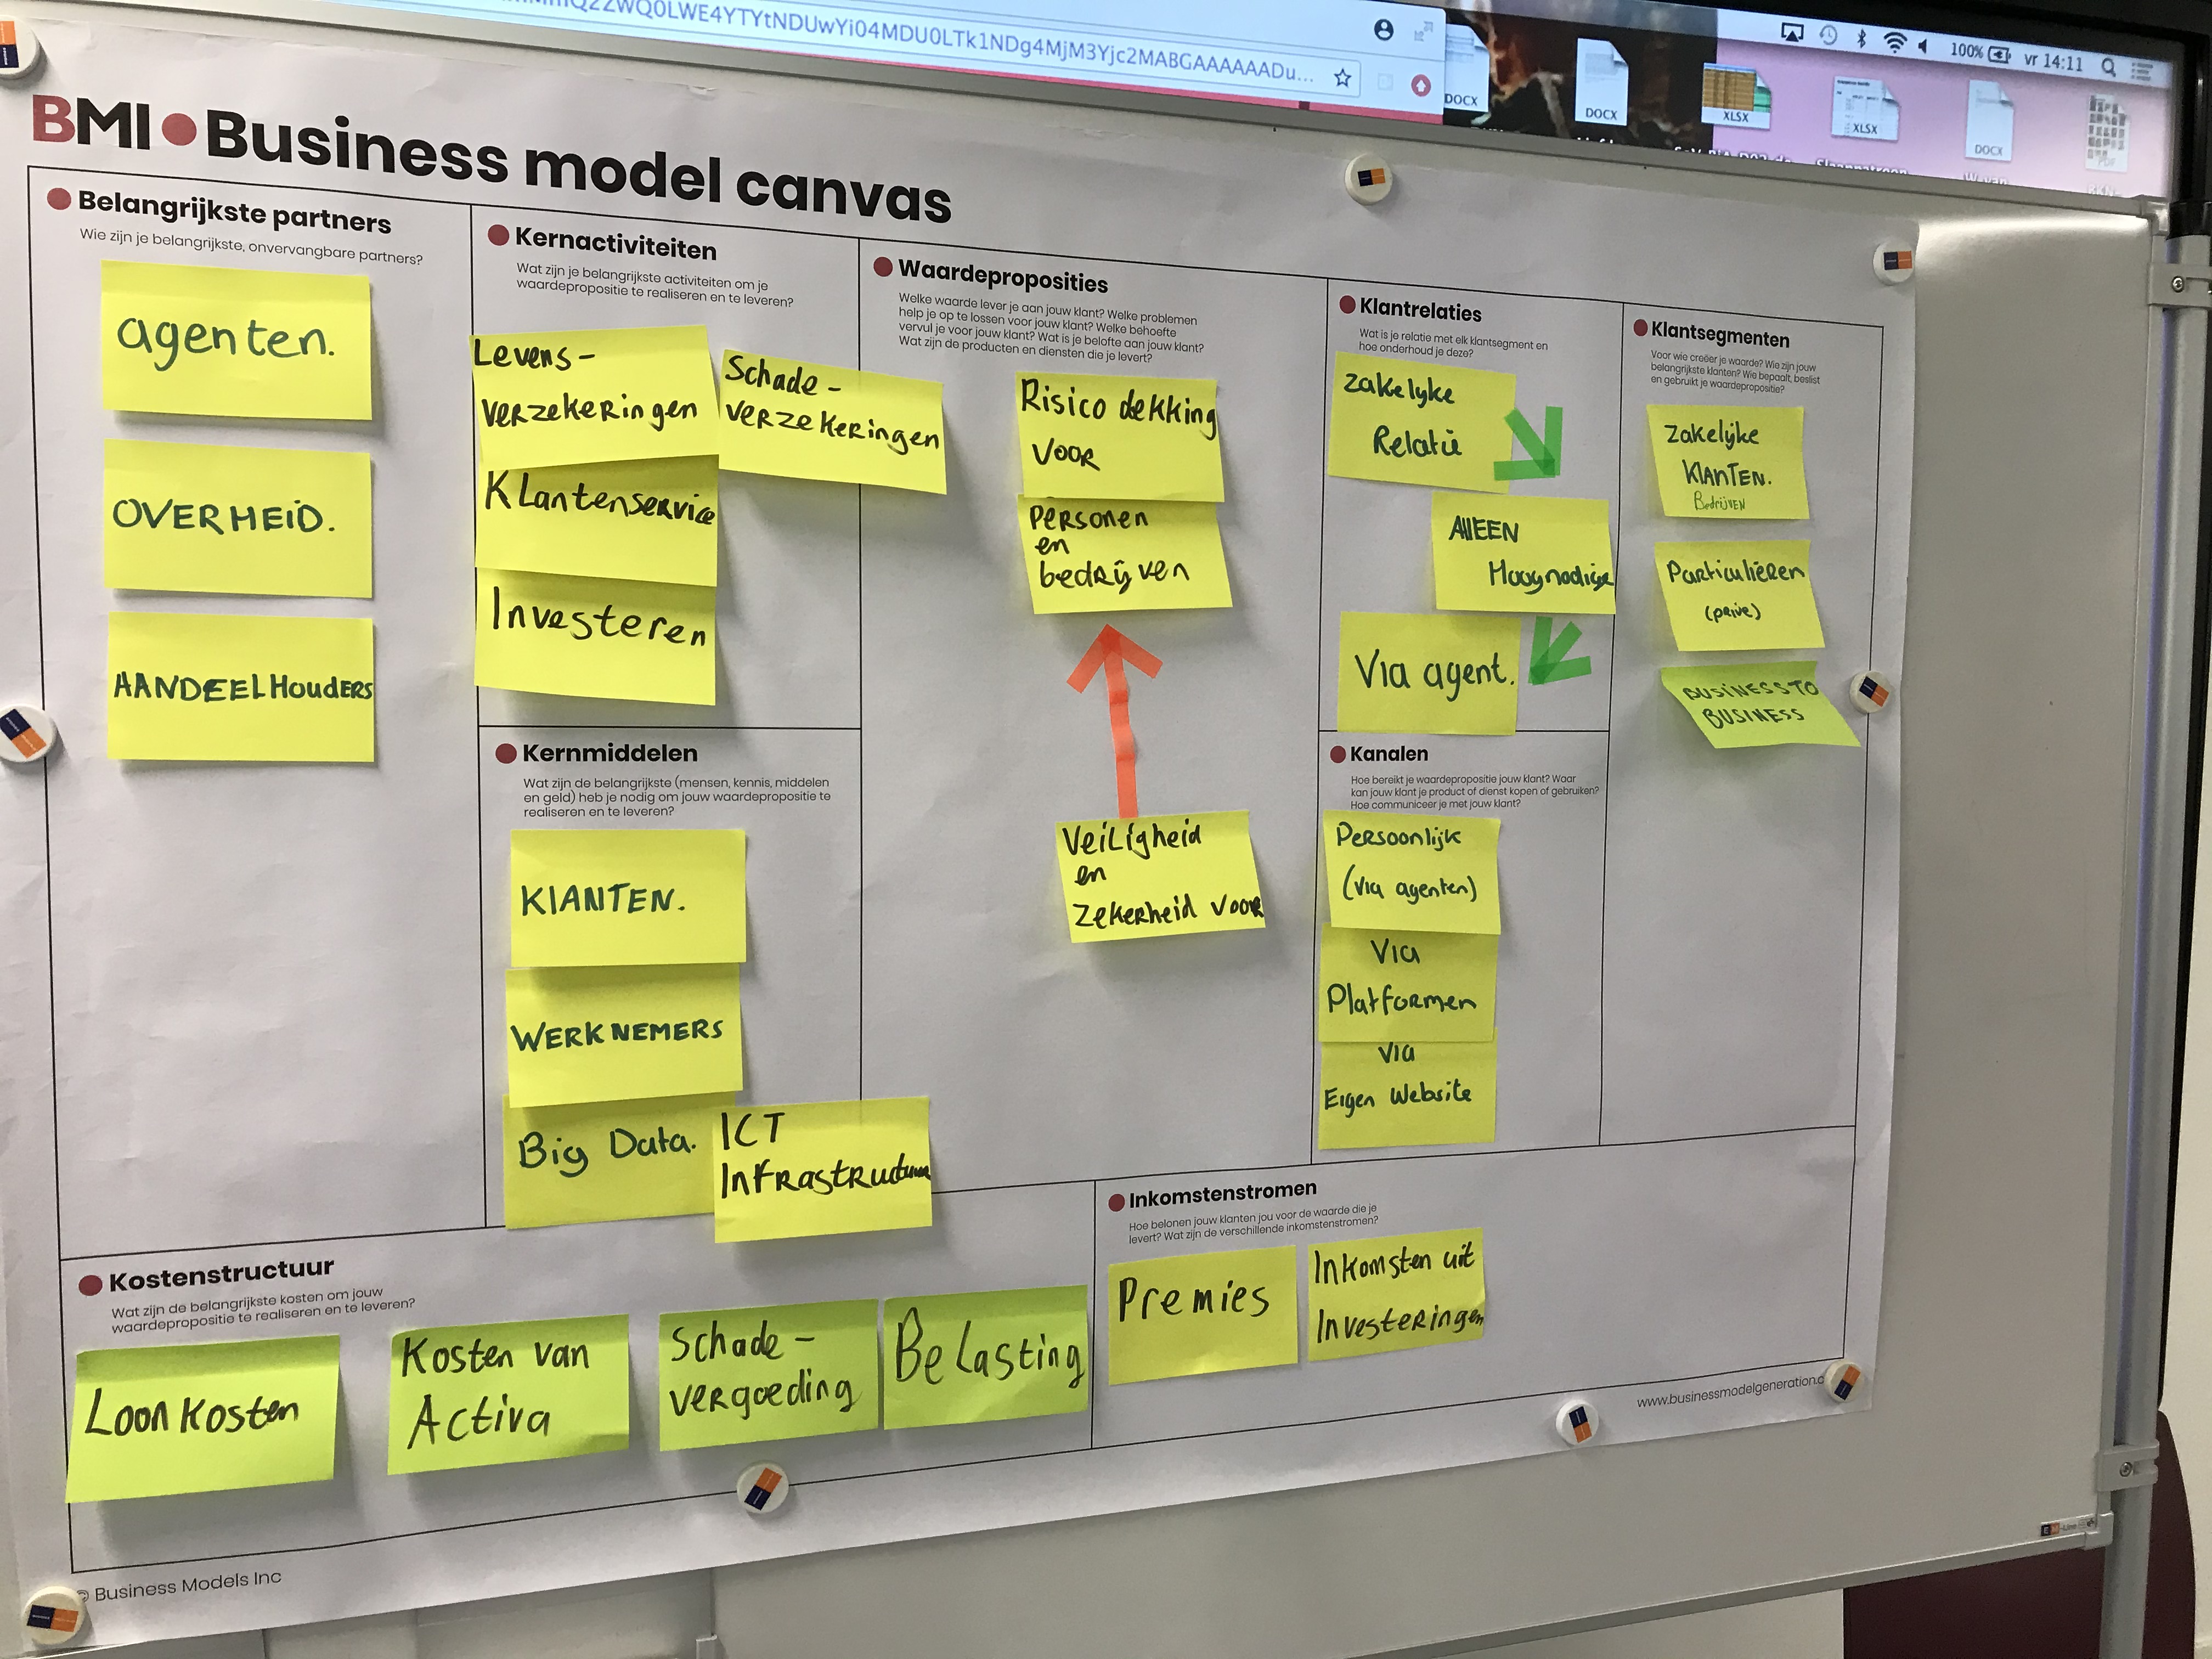 vr 14:11
100%
DOCX
DOCX
XLSX
XLSX
DOCX
BMI Business model canvas
Belangrijkste partners
Wie zijn je belangrijkste, onvervangbare partners?
agenten.
OVERHEID.
AANDEELHouDERS
Kernactiviteiten
Wat zijn je belangrijkste activiteiten om je
waardepropositie te realiseren en te leveren?
Levens-
verzekeringen
Schade-
verzekeringen
Klantenservice
Investeren
Kernmiddelen
Wat zijn de belangrijkste (mensen, kennis, middelen
en geld) heb je nodig om jouw waardepropositie te
realiseren en te leveren?
KlANTEN.
WERKNEMERS
Big Data.
ICT
Infrastructuur
Waardeproposities
Welke waarde lever je aan jouw klant? Welke problemen
help je op te lossen voor jouw klant? Welke behoefte
vervul je voor jouw klant? Wat is je belofte aan jouw klant?
Wat zijn de producten en diensten die je levert?
Risico dekking
voor
personen
en
bedrijven
Veiligheid
en
zekerheid voor
Klantrelaties
Wat is je relatie met elk klantsegment en
hoe onderhoud je deze?
zakelyke
Relatie
AllEEN
Hoognodige
Via agent.
Kanalen
Hoe bereikt je waardepropositie jouw klant? Waar
kan jouw klant je product of dienst kopen of gebruiken?
Hoe communiceer je met jouw klant?
Persoonlijk
(via agenten)
Via
Platformen
via
Eigen Website
Klantsegmenten
Voor wie creëer je waarde? Wie zijn jouw
belangrijkste klanten? Wie bepaalt, beslist
en gebruikt je waardepropositie?
Zakelijke
KlANTEN.
BedrijVEN
Particulieren
(privé)
BUSINESS TO
BUSINESS
Kostenstructuur
Wat zijn de belangrijkste kosten om jouw
waardepropositie te realiseren en te leveren?
Loon kosten
Kosten van
Activa
Schade-
vergoeding
Belasting
Inkomstenstromen
Hoe belonen jouw klanten jou voor de waarde die je
levert? Wat zijn de verschillende inkomstenstromen?
Premies
Inkomsten uit
Investeringen
www.businessmodelgeneration.c
© Business Models Inc